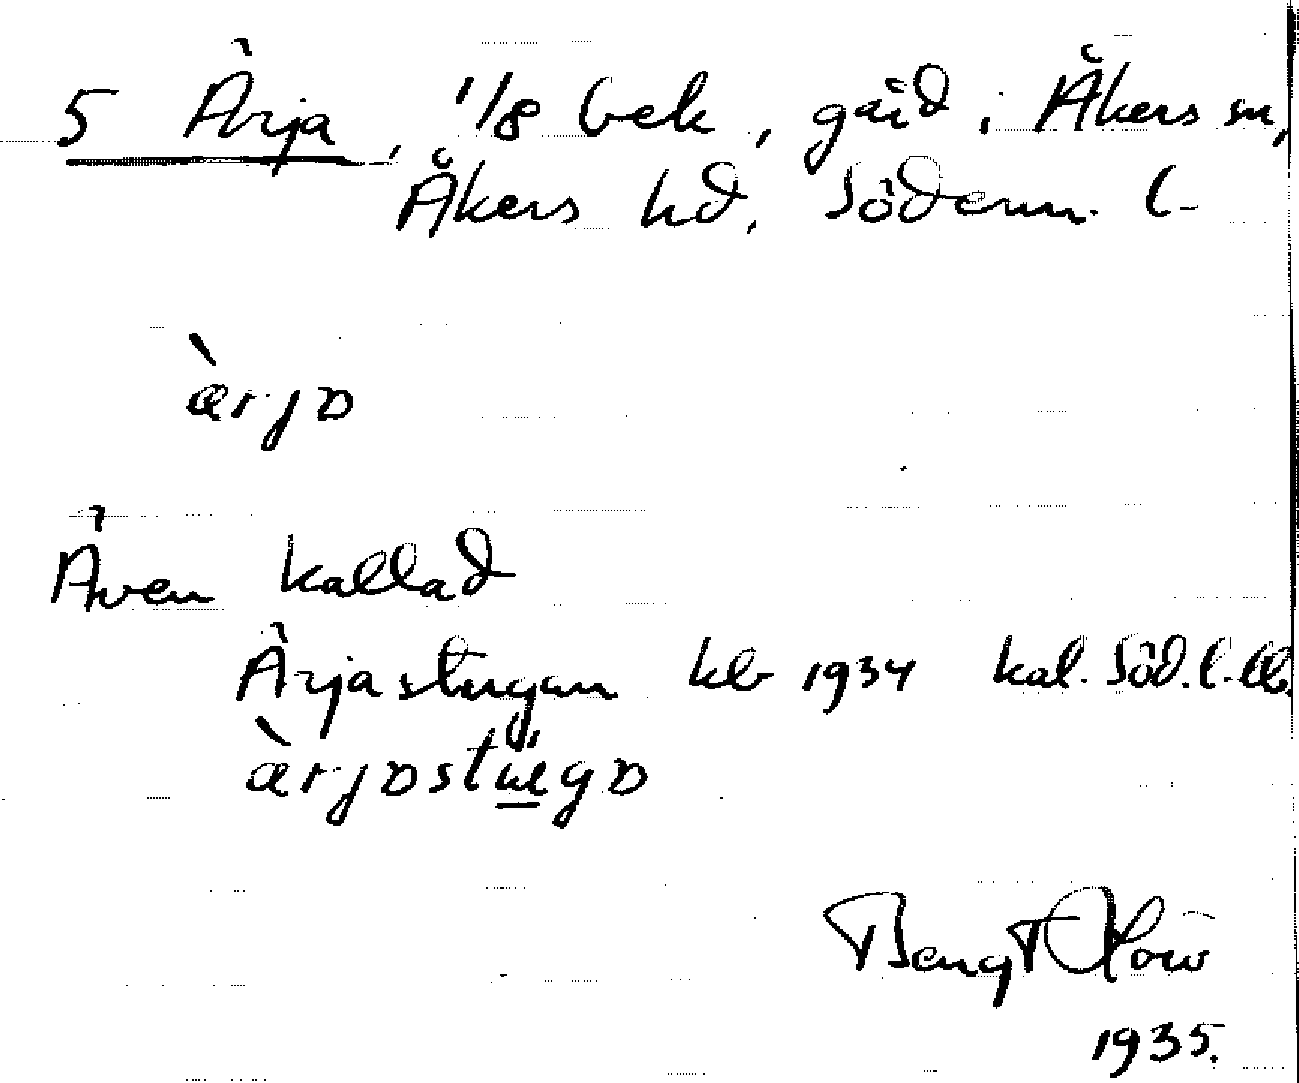 5 Ärja, 1/8 bek, gård i Åkers sn,
Åkers hd, Söderm. l.
ærja
Även kallad
Ärjastugan kb 1934 kal. Söd. l.
ærjastugɑ
Bengt
1935.